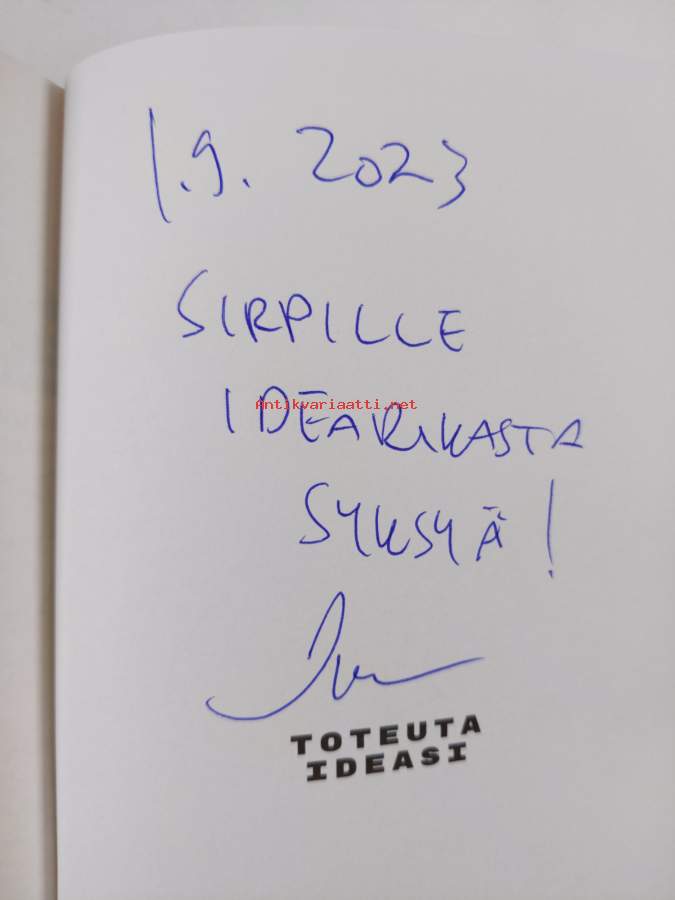 1.9. 2023
SIRPILLE
Antikvariaatti.net
IDEARIKASTA
SYKSYÄ!
TOTEUTA
IDEASI